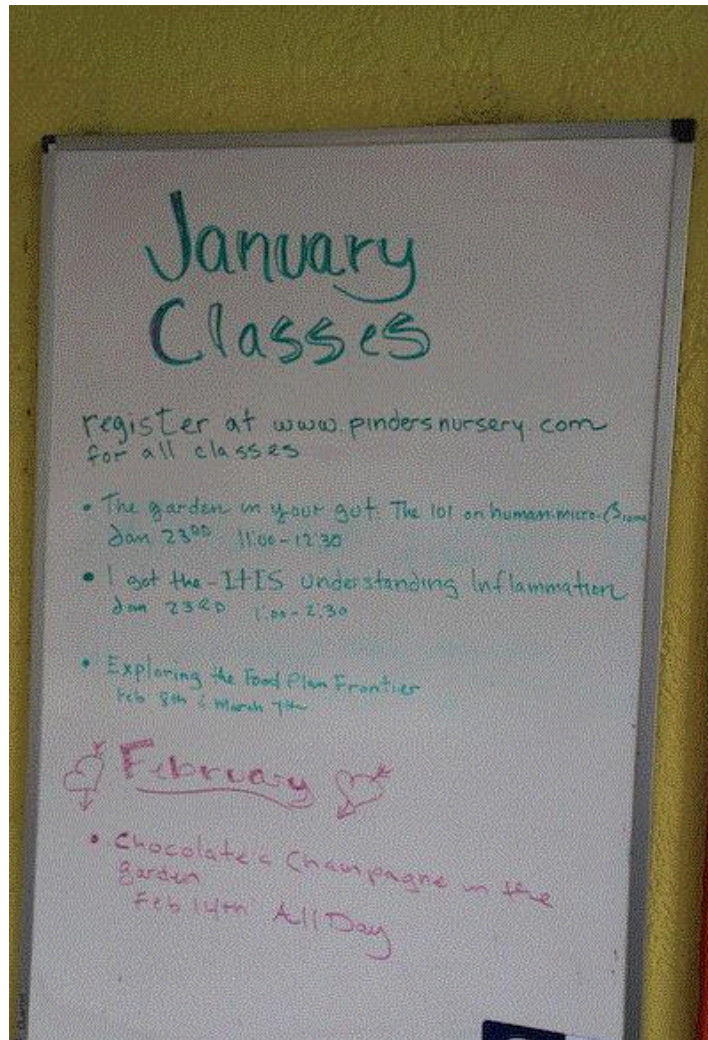 January
Classes
register at www.pindersnursery.com
for all classes
• The garden in your gut. The 101 on human-micro-Biome
Jan 23RD 11:00-12:30
• I got the -ITIS understanding Inflammation
Jan 23RD 1:00-2:30
• Exploring the Food Plan Frontier
Feb 8th & March 7th
February
• Chocolate & Champagne in the
garden
Feb 14th All Day